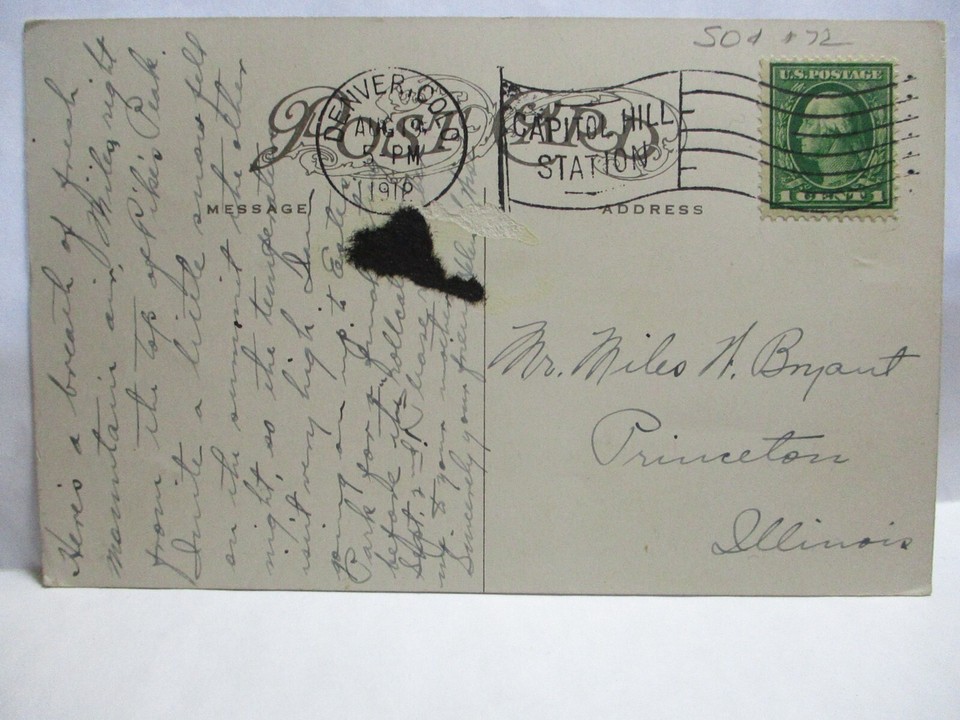 50¢ #72
POST CARD
DENVER, COLO
AUG 9
5 PM
191
CAPITOL HILL
STATION
U.S. POSTAGE
1 CENT 1
MESSAGE
ADDRESS
Here's a breath of fresh
mountain air, Miles, right
from the top of Pike's Peak.
Quite a little snow fell
on the summit the other
night, so the temperature
isn't very high. I'm
going on up to Estes
Park for a
before the
Sept. 2. Please
my to your mother
Sincerely your friend
Mr. Miles W. Bryant
Princeton
Illinois